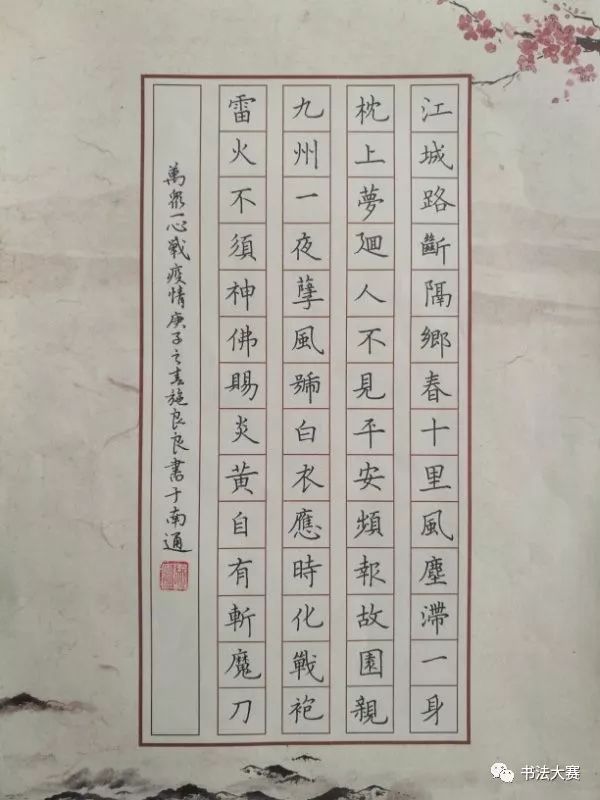 江城路斷隔鄉春十里風塵滯一身
枕上夢廻人不見平安頻報故園親
九州一夜孽風號白衣應時化戰袍
雷火不須神佛賜炎黃自有斬魔刀
萬眾一心戰疫情庚子之春施良良書于南通
书法大赛